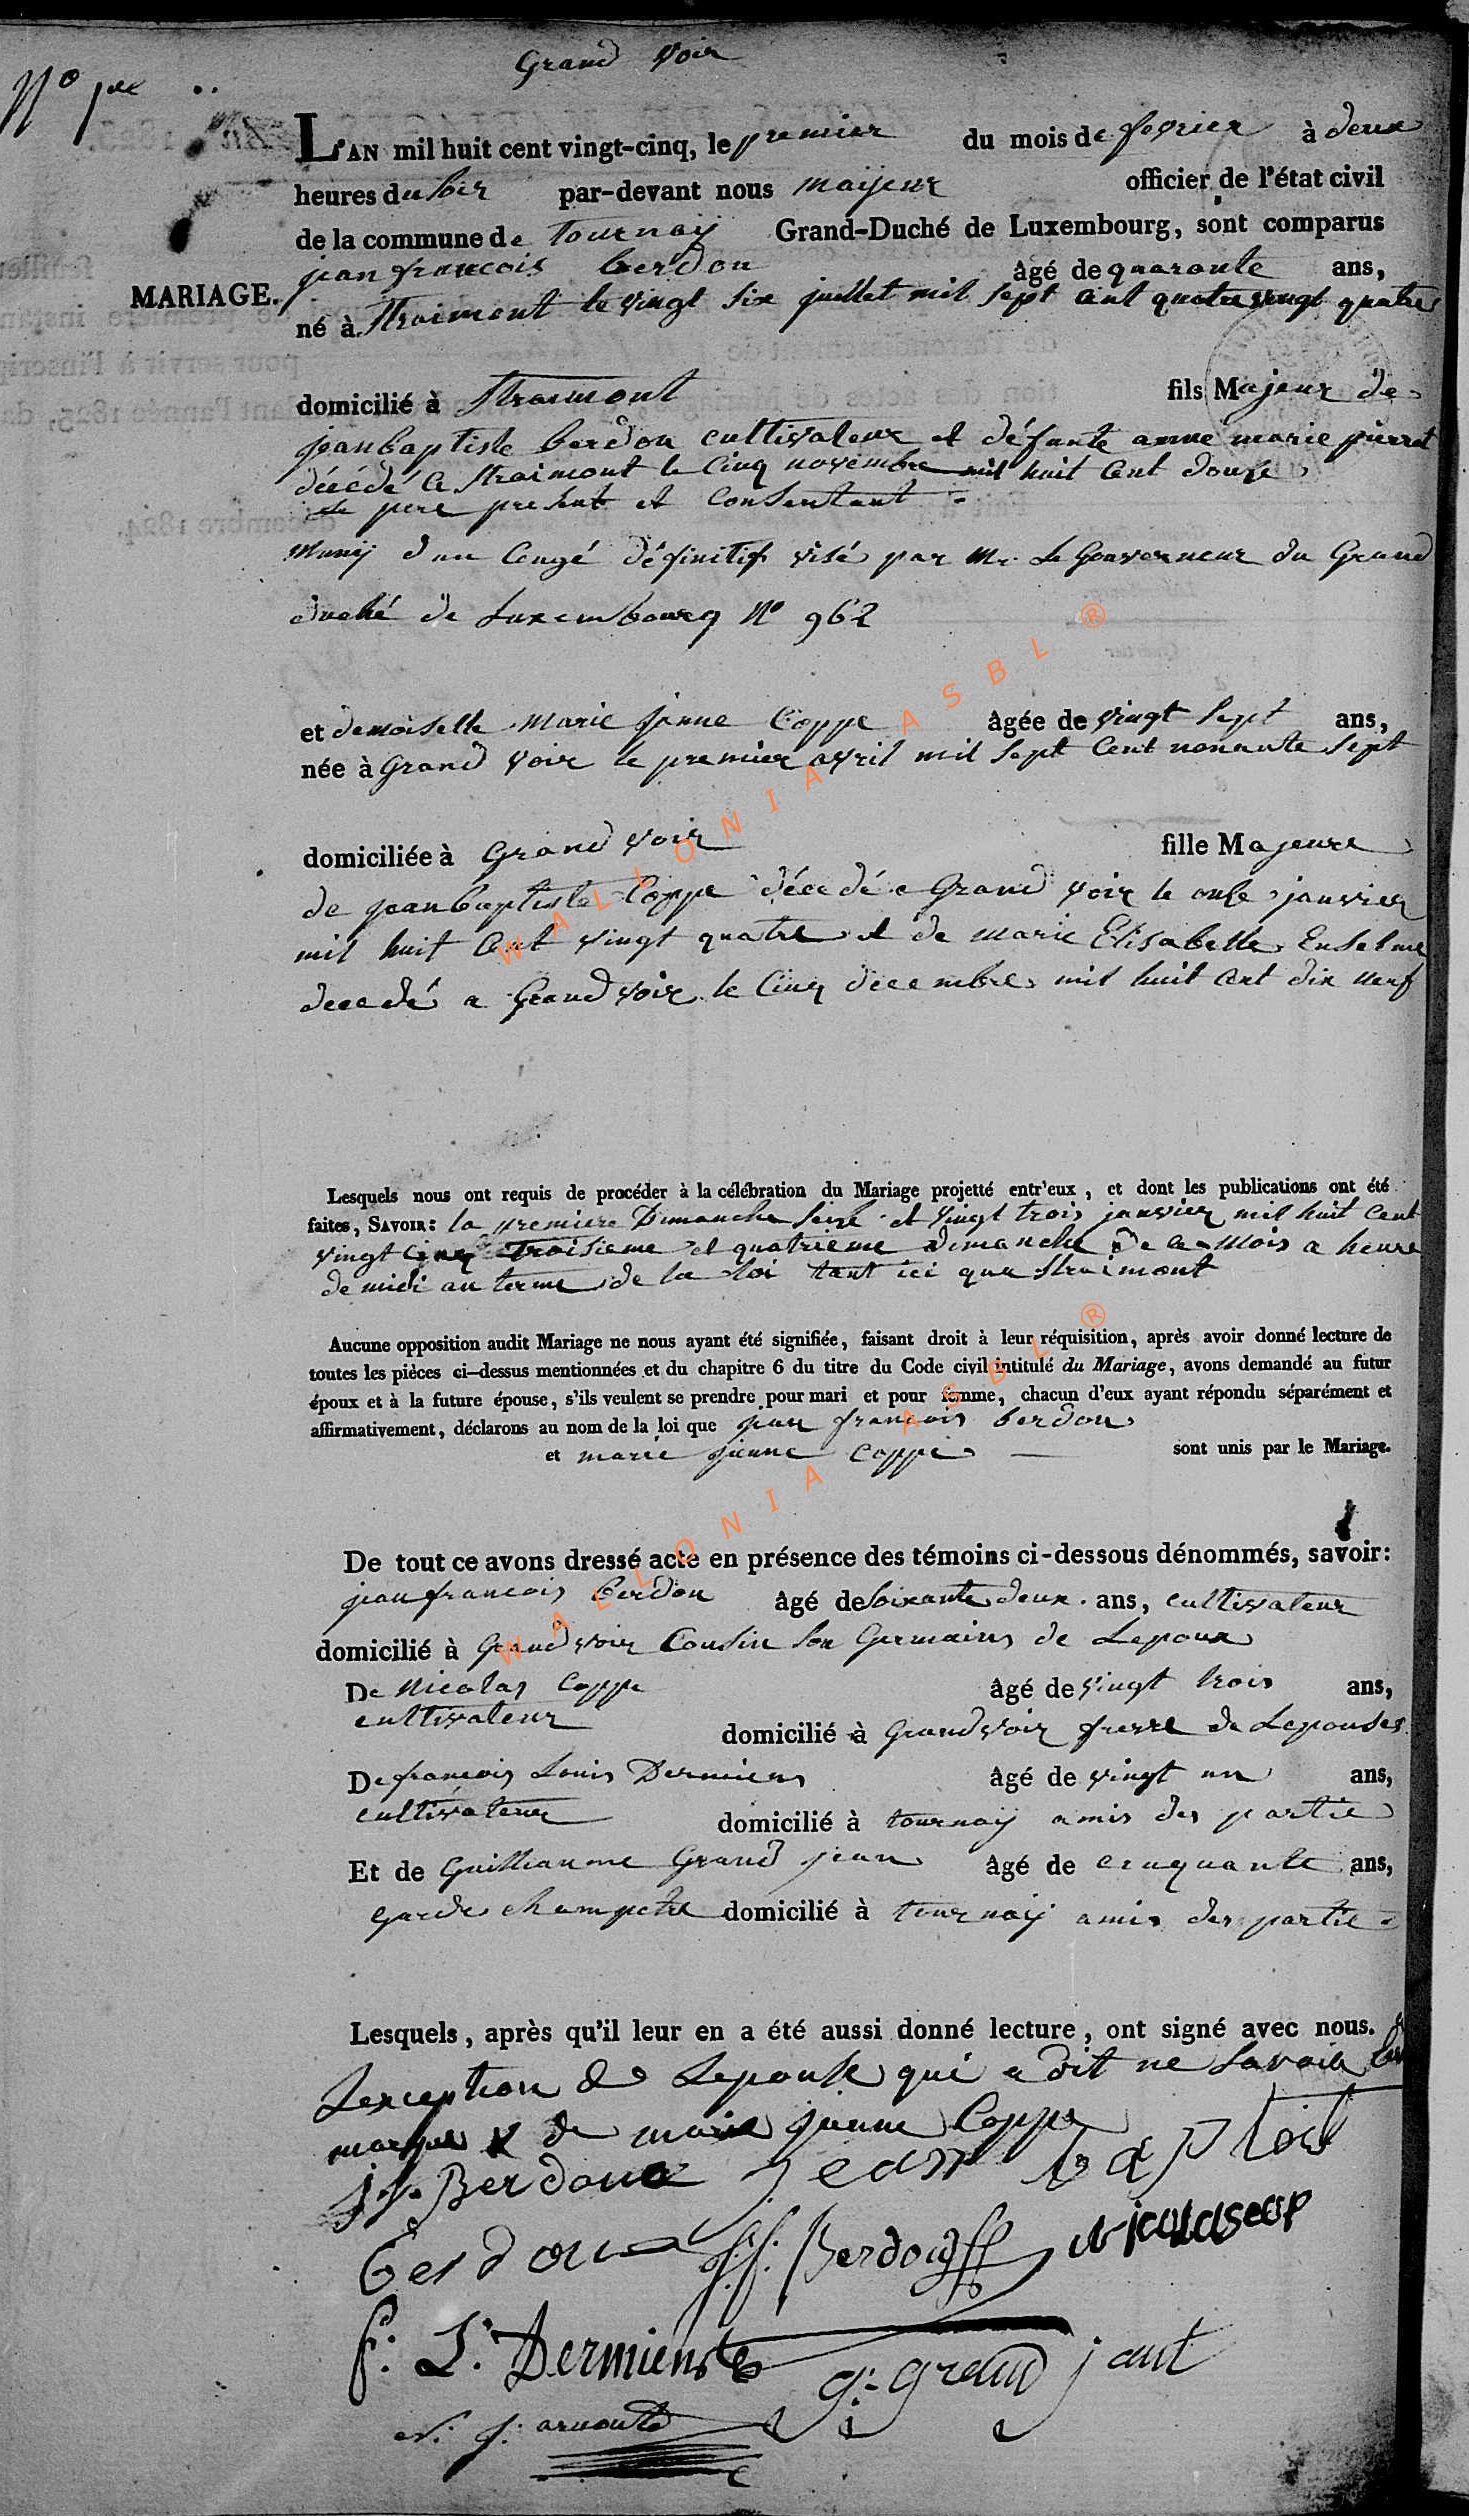 Grand Voir
N° 1er
L'AN mil huit cent vingt-cinq, le premier du mois de fevrier à deux
heures du soir par-devant nous maijeur officier de l'état civil
de la commune de tournaÿ Grand-Duché de Luxembourg, sont comparus
jean francois berdou âgé de quarante ans,
MARIAGE.
né à Straimont le vingt six juillet mil sept cent quatre vingt quatre
domicilié à Straimont fils Majeur de
jean baptiste berdou cultivateur et défunte anne marie pierret
décédé a Straimont le cinq novembre mil huit cent douze
le pere present et consentant
muny d'un Congé définitif visé par Mr. Le Gouverneur du Grand
duché de Luxembourg N° 962
et demoiselle marie jenne Coppe âgée de vingt sept ans,
née à Grand Voir le premier avril mil sept cent nonante sept
domiciliée à Grand Voir fille Majeure
de jean baptiste Coppe décédé a Grand Voir le onse janvier
mil huit cent vingt quatre et de marie Elisabette Enselme
decedé a Grand voir le cinq decembre mil huit cent dix neuf
Lesquels nous ont requis de procéder à la célébration du Mariage projetté entr'eux, et dont les publications ont été
faites, SAVOIR: la premiere Dimanche seize et vingt trois janvier mil huit cent
vingt cinq troisieme et quatrieme dimanche de ce mois a heure
de midi au terme de la loi tant ici que Straimont
Aucune opposition audit Mariage ne nous ayant été signifiée, faisant droit à leur réquisition, après avoir donné lecture de
toutes les pièces ci-dessus mentionnées et du chapitre 6 du titre du Code civil intitulé du Mariage, avons demandé au futur
époux et à la future épouse, s'ils veulent se prendre pour mari et pour femme, chacun d'eux ayant répondu séparément et
affirmativement, déclarons au nom de la loi que jean francois berdou
et marie jenne coppe sont unis par le Mariage.
De tout ce avons dressé acte en présence des témoins ci-dessous dénommés, savoir:
jean francois berdou âgé de soixante deux ans, cultivateur
domicilié à Grand voir Cousin son Germains de Lepoux
De Nicolas Coppe âgé de vingt trois ans,
cultivateur domicilié à Grand voir frere de Lepouse
De francois Louis Dermience âgé de vingt un ans,
cultivateur domicilié à tournaÿ amis des partie
Et de Guilleaume Grand jean âgé de cinquante ans,
garde champetre domicilié à tournaÿ amis des partie
Lesquels, après qu'il leur en a été aussi donné lecture, ont signé avec nous. a
Lexception de Lepouse qui a dit ne savoir
marque x de marie jeanne Coppe
j f Berdoux jean baptist
berdoux j. f. Berdou nicolascop
f. L. Dermience g. grandjant
N. J. arnould
WALLONIA ASBL ®
WALLONIA ASBL ®